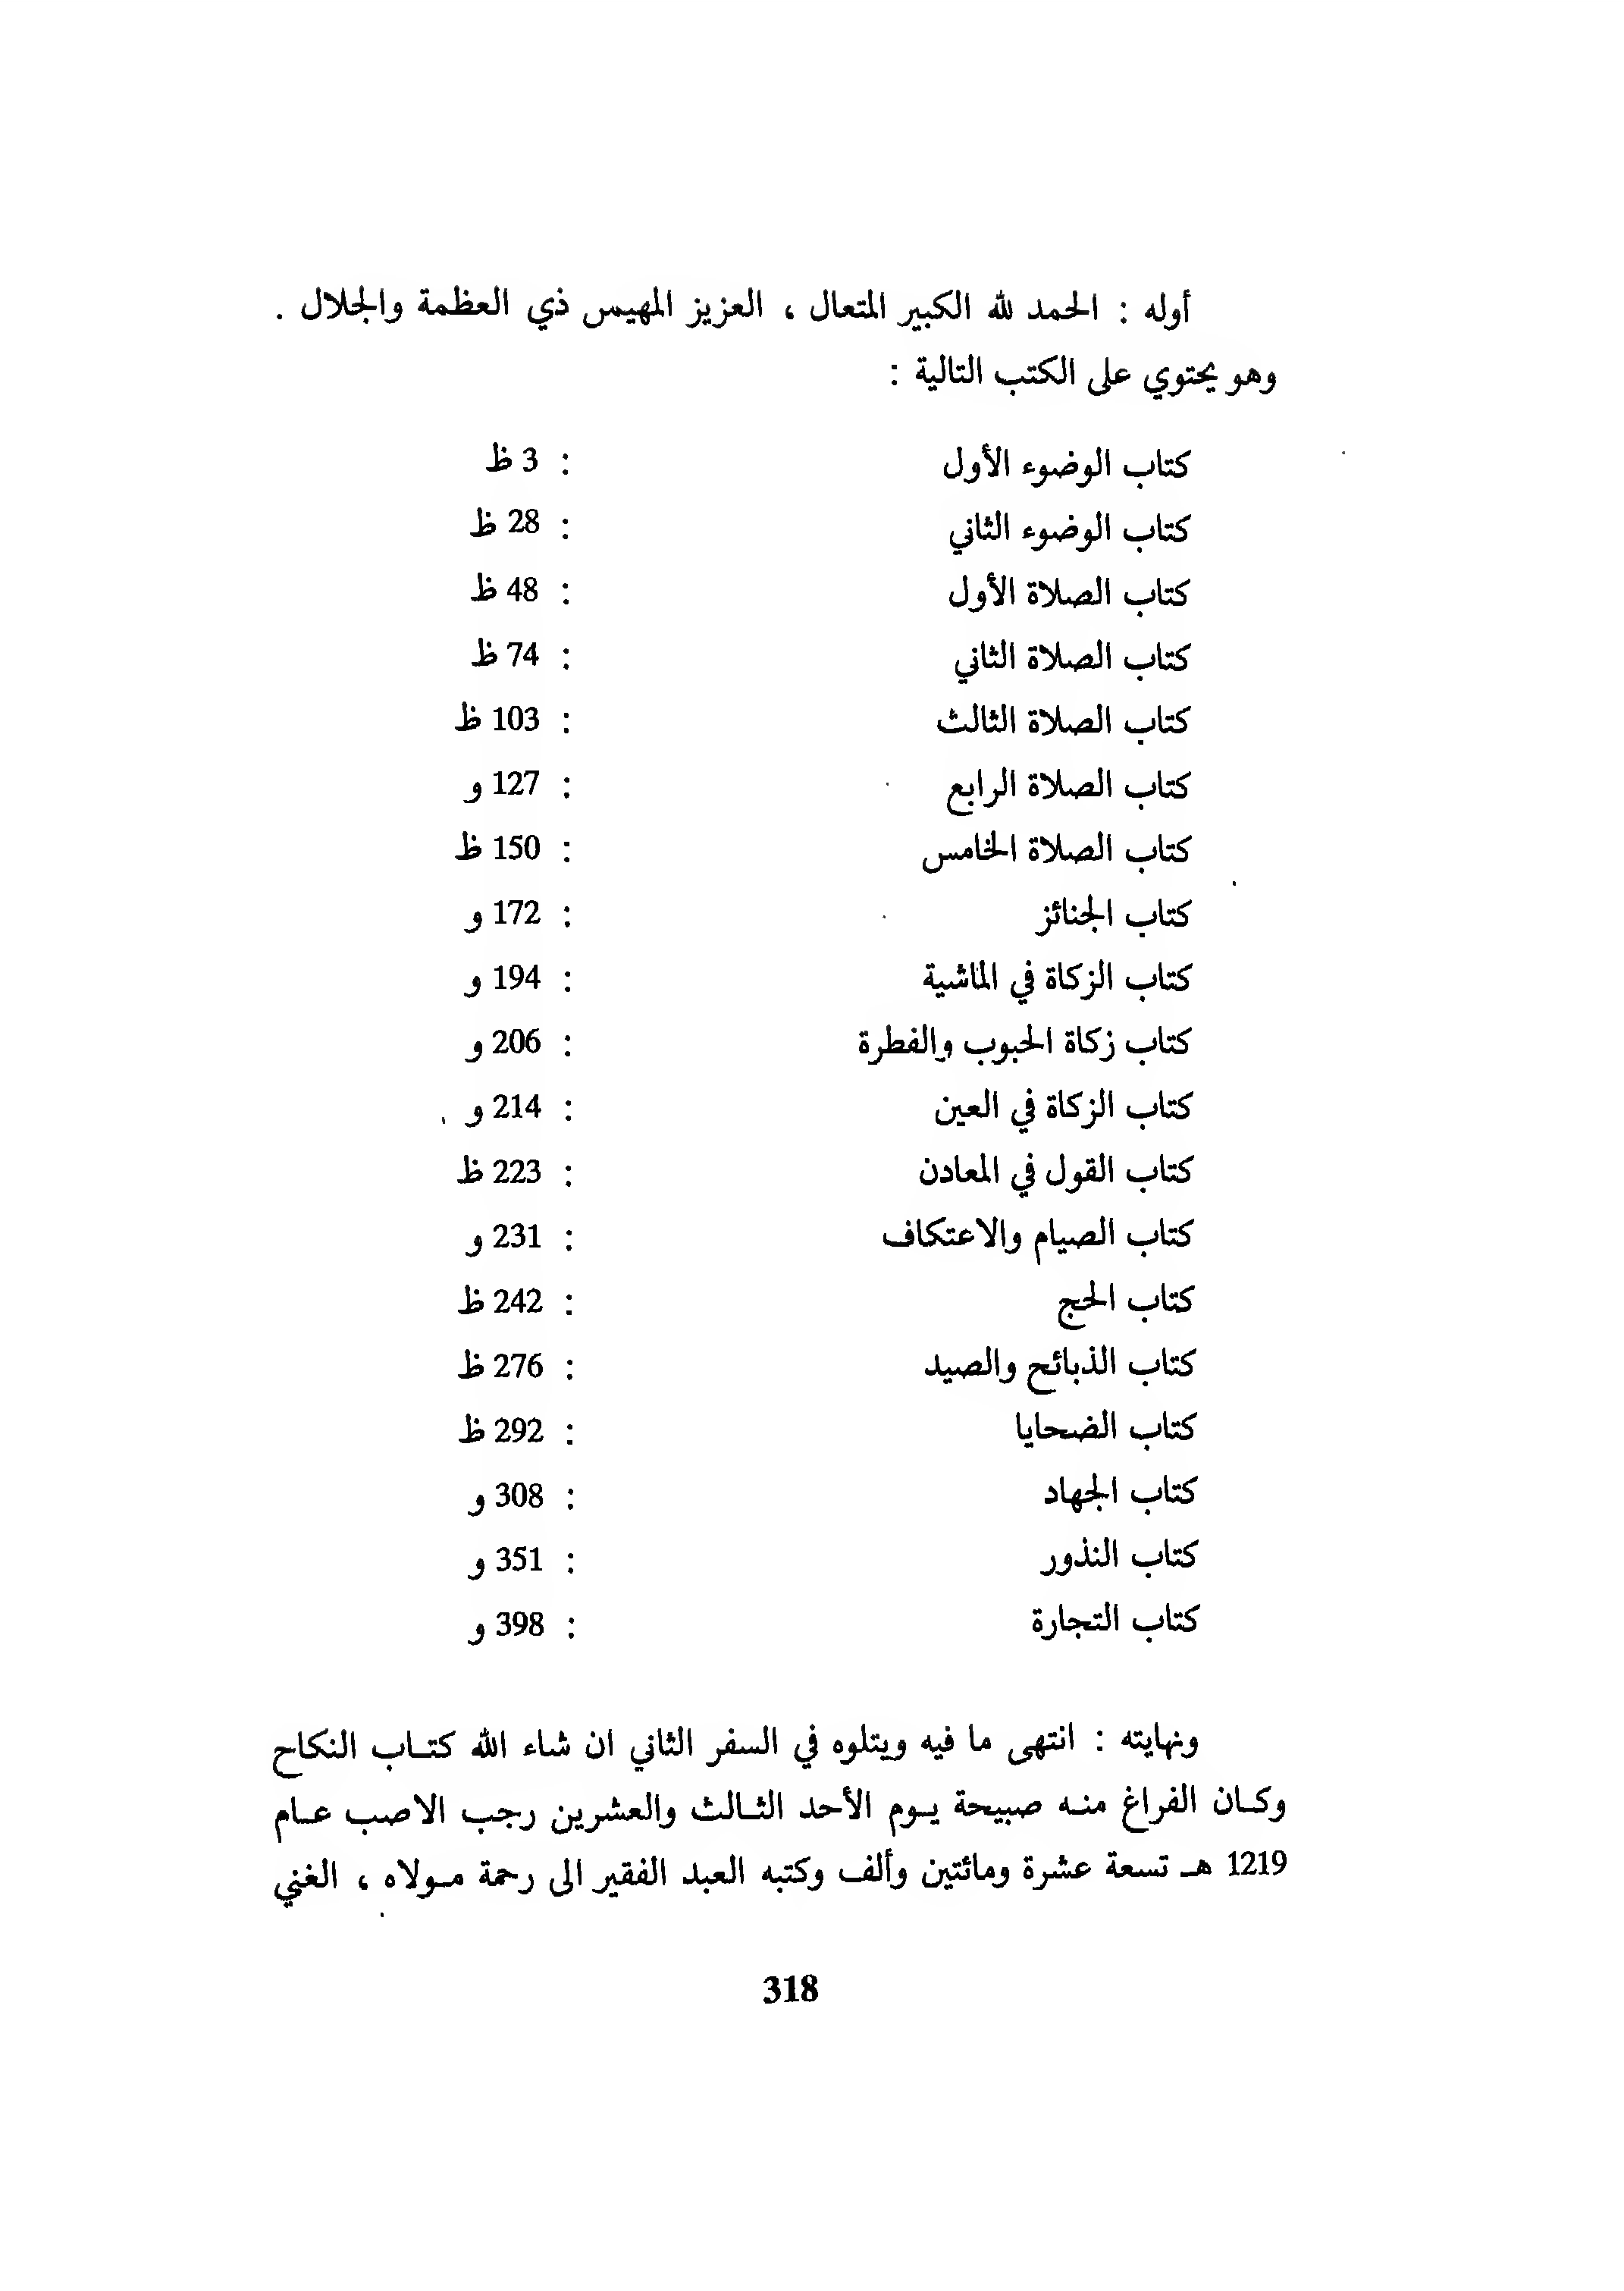 أوله : الحمد لله الكبير المتعال ، العزيز المهيس ذي العظمة والجلال .
وهو يحتوي على الكتب التالية :
كتاب الوضوء الأول : 3 ظ
كتاب الوضوء الثاني : 28 ظ
كتاب الصلاة الأول : 48 ظ
كتاب الصلاة الثاني : 74 ظ
كتاب الصلاة الثالث : 103 ظ
كتاب الصلاة الرابع : 127 و
كتاب الصلاة الخامس : 150 ظ
كتاب الجنائز : 172 و
كتاب الزكاة في الماشية : 194 و
كتاب زكاة الحبوب والفطرة : 206 و
كتاب الزكاة في العين : 214 و
كتاب القول في المعادن : 223 ظ
كتاب الصيام والاعتكاف : 231 و
كتاب الحج : 242 ظ
كتاب الذبائح والصيد : 276 ظ
كتاب الضحايا : 292 ظ
كتاب الجهاد : 308 و
كتاب النذور : 351 و
كتاب التجارة : 398 و
ونهايته : انتهى ما فيه ويتلوه في السفر الثاني ان شاء الله كتاب النكاح
وكان الفراغ منه صبيحة يوم الأحد الثالث والعشرين رجب الاصب عام
1219 هـ تسعة عشرة ومائتين وألف وكتبه العبد الفقير الى رحمة مولاه ، الغني
318